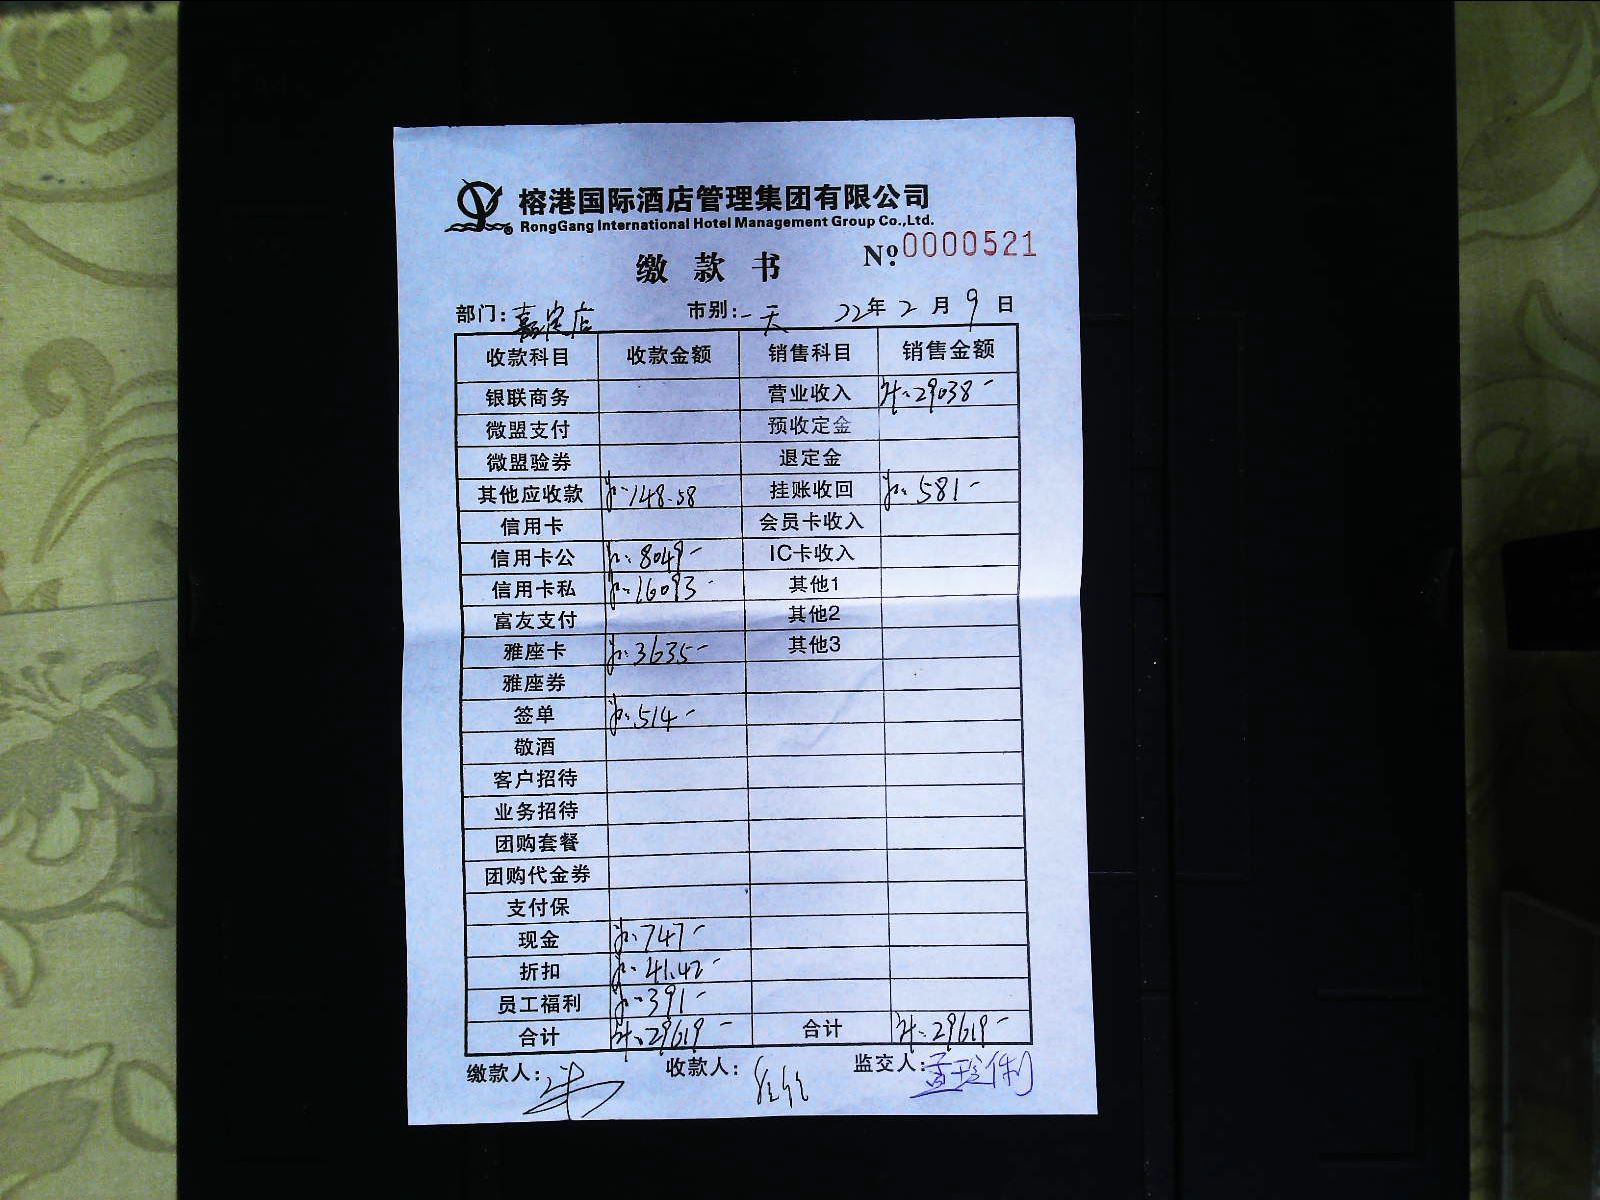 榕港国际酒店管理集团有限公司
RongGang International Hotel Management Group Co.,Ltd.
缴款书 Nº 0000521
部门：嘉定店 市别：一天 22年2月9日
收款科目 收款金额 销售科目 销售金额
银联商务 营业收入 29038-
微盟支付 预收定金
微盟验券 退定金
其他应收款 148.58 挂账收回 581-
信用卡 会员卡收入
信用卡公 8049- IC卡收入
信用卡私 16093- 其他1
富友支付 其他2
雅座卡 3635- 其他3
雅座券
签单 514-
敬酒
客户招待
业务招待
团购套餐
团购代金券
支付保
现金 747-
折扣 41.42-
员工福利 391-
合计 29619- 合计 29619-
缴款人： 收款人： 监交人：